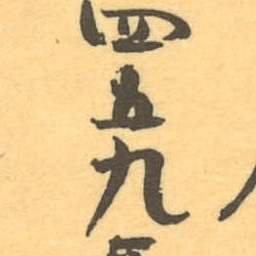 四五九